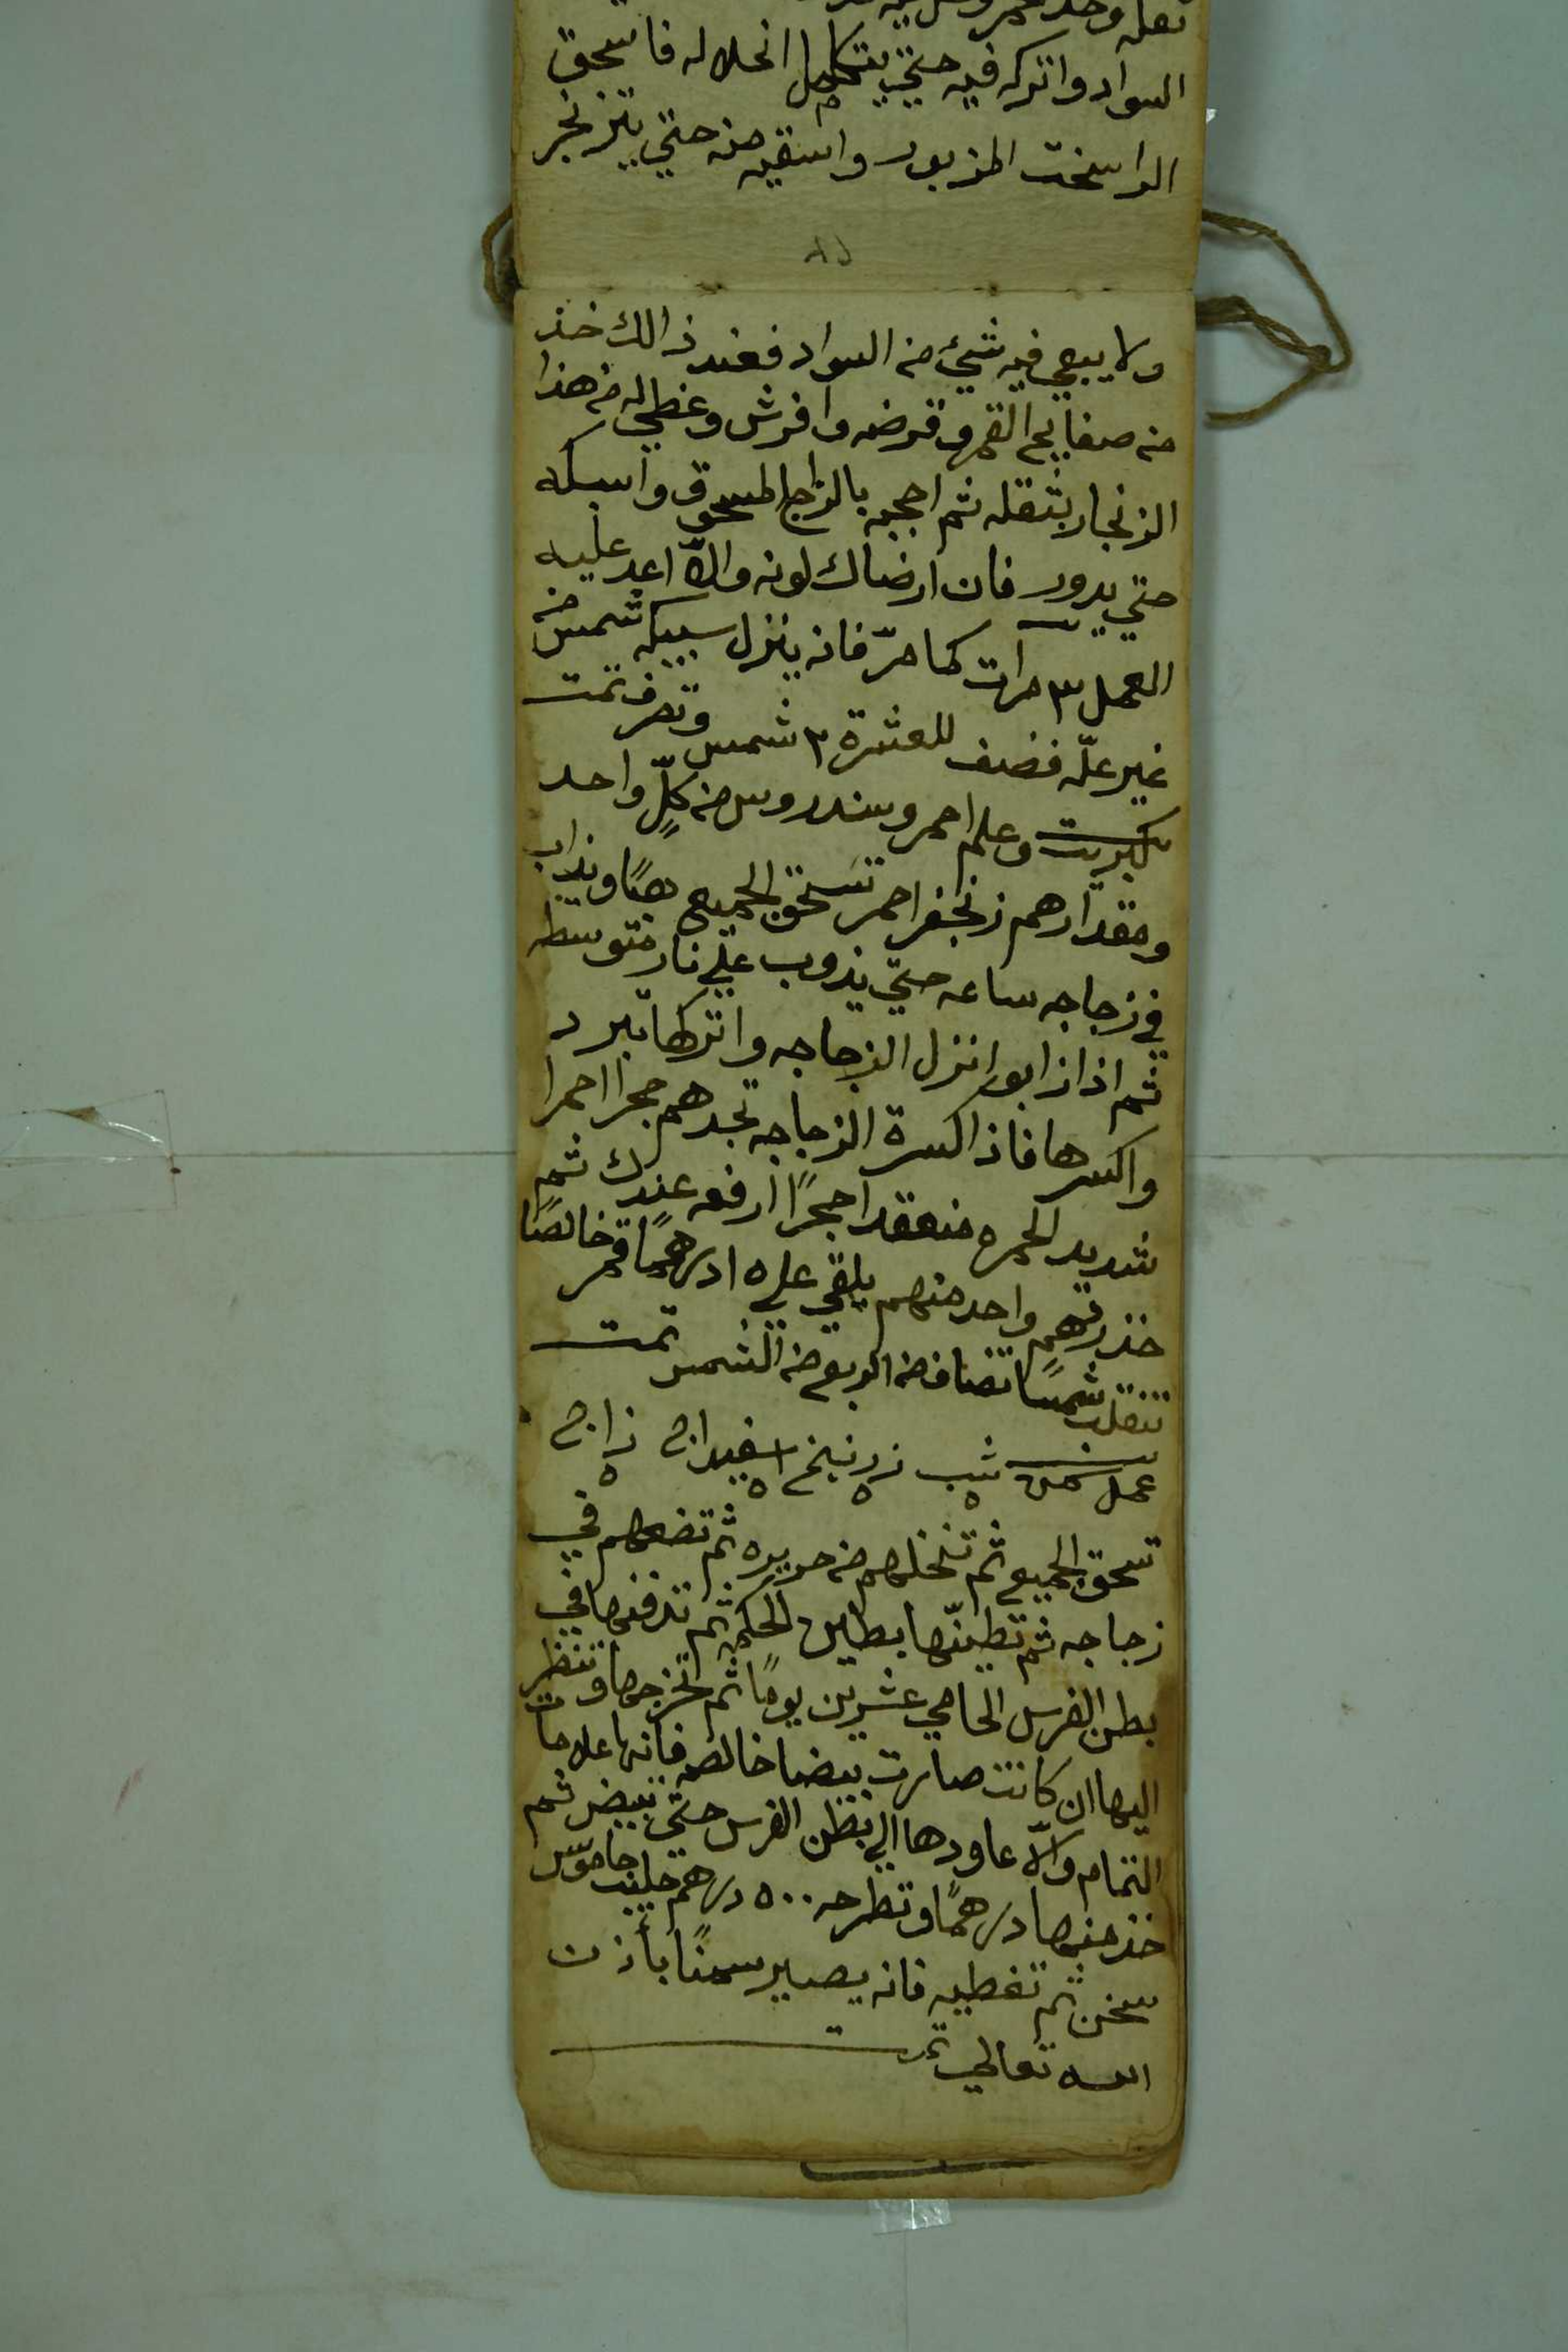 السواد واتركه فيه حتي يتكامل انحلاله فاسحق
الراسخت المزبور واسقيه منه حتي يتزنجر
ولا يبقي فيه شيئ من السواد فعند ذالك خذ
من صفايح القمر وقرضه وافرش وغطي له من هذا
الزنجار بثقله ثم احجبه بالزاج المسحوق واسبكه
حتي يدور فان ارضاك لونه والّا اعد عليه
العمل ٣ مرات كما مرّ فانه ينزل سبيكه شمس من
غير علّه فضف للعشرة ٣ شمس وتصرف تمت
كبريت وعلم احمر وسندروس من كلٍّ واحد
ومقدارهم زنجفر احمر تسحق الجميع هبًا ويذاب
في زجاجه ساعه حتي يذوب علي نار متوسطه
ثم اذا ذابو انزل الزجاجه واتركها تبرد
واكسرها فاذا كسرة الزجاجه تجدهم حجرا احمرا
شديد الحمره منعقدا حجرًا ارفعه عندك ثم
خذ درهم واحد منهم يلقي علي ١٥ درهمًا قمر خالصًا
تنقلب شمسًا تضاف من الربع من الشمس تمت
عمل سمن شب زرنيخ اسفيداج زاج
٥ ٥ ٥ ٥
تسحق الجميع ثم تنخلهم من حريره ثم تضعهم في
زجاجه ثم تطينّها بطين الحكمه ثم تدفنها في
بطن الفرس الحامي عشرين يومًا ثم اتخرجها وتنظر
اليها ان كانت صارت بيضا خالصه فانها علامات
التمام والّا عاودها الي بطن الفرس حتي تبيض ثم
خذ منها درهمًا وتطرحه ٥٠٠ درهم حليب جاموس
سخن ثم تغطيه فانه يصير سمنًا بأذن
الله تعالي تمت